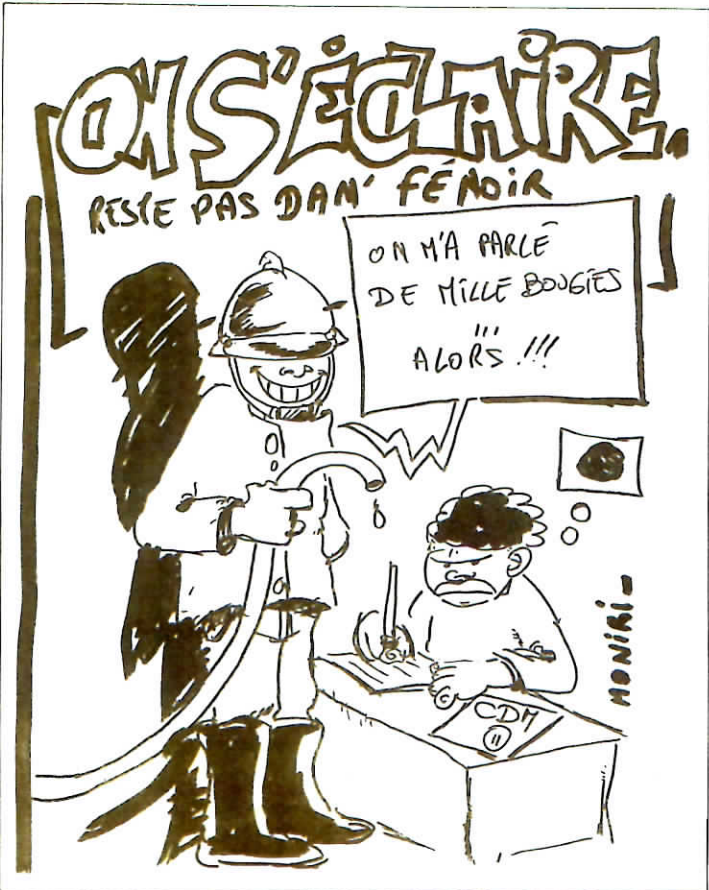 ON S'ÉCLAIRE.
RESTE PAS DAN' FÉNOIR
ON M'A PARLÉ
DE MILLE BOUGIES
...
ALORS !!!
CDM
11
MONIRI